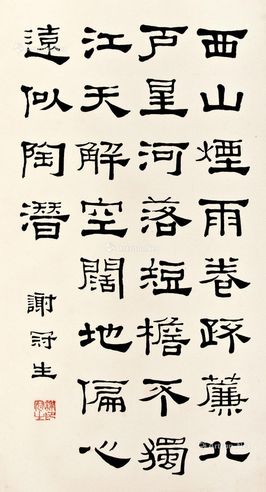 西山煙雨卷疎簾北
戶星河落短檐不獨
江天解空闊地偏心
遠似陶潛
謝冠生